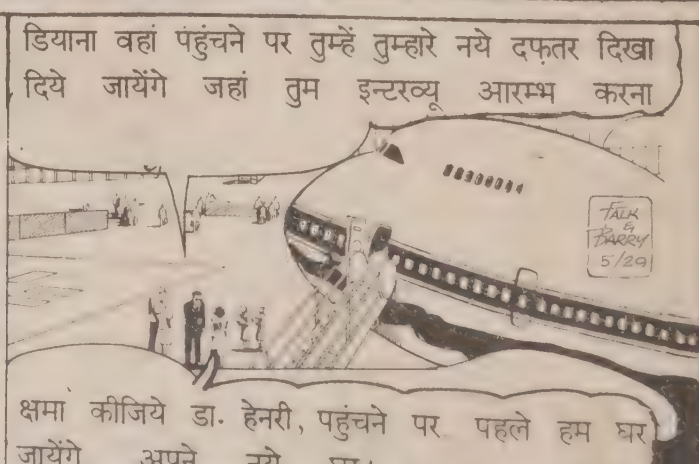 डियाना वहां पंहुंचने पर तुम्हें तुम्हारे नये दफ़तर दिखा
दिये जायेंगे जहां तुम इन्टरव्यू आरम्भ करना
FALK
&
BARRY
5/29
क्षमा कीजिये डा. हेनरी, पहुंचने पर पहले हम घर
जायेंगे अपने नये घर